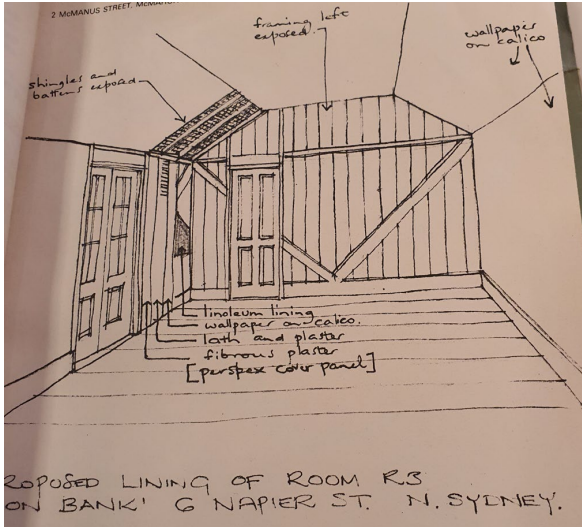 2 McMANUS STREET, McMAHON
framing left
exposed.
wallpaper
on calico
shingles and
battens exposed
linoleum lining
wallpaper on calico.
lath and plaster
fibrous plaster
[perspex cover panel]
ROPOSED LINING OF ROOM R3
ON BANK' 6 NAPIER ST. N. SYDNEY.